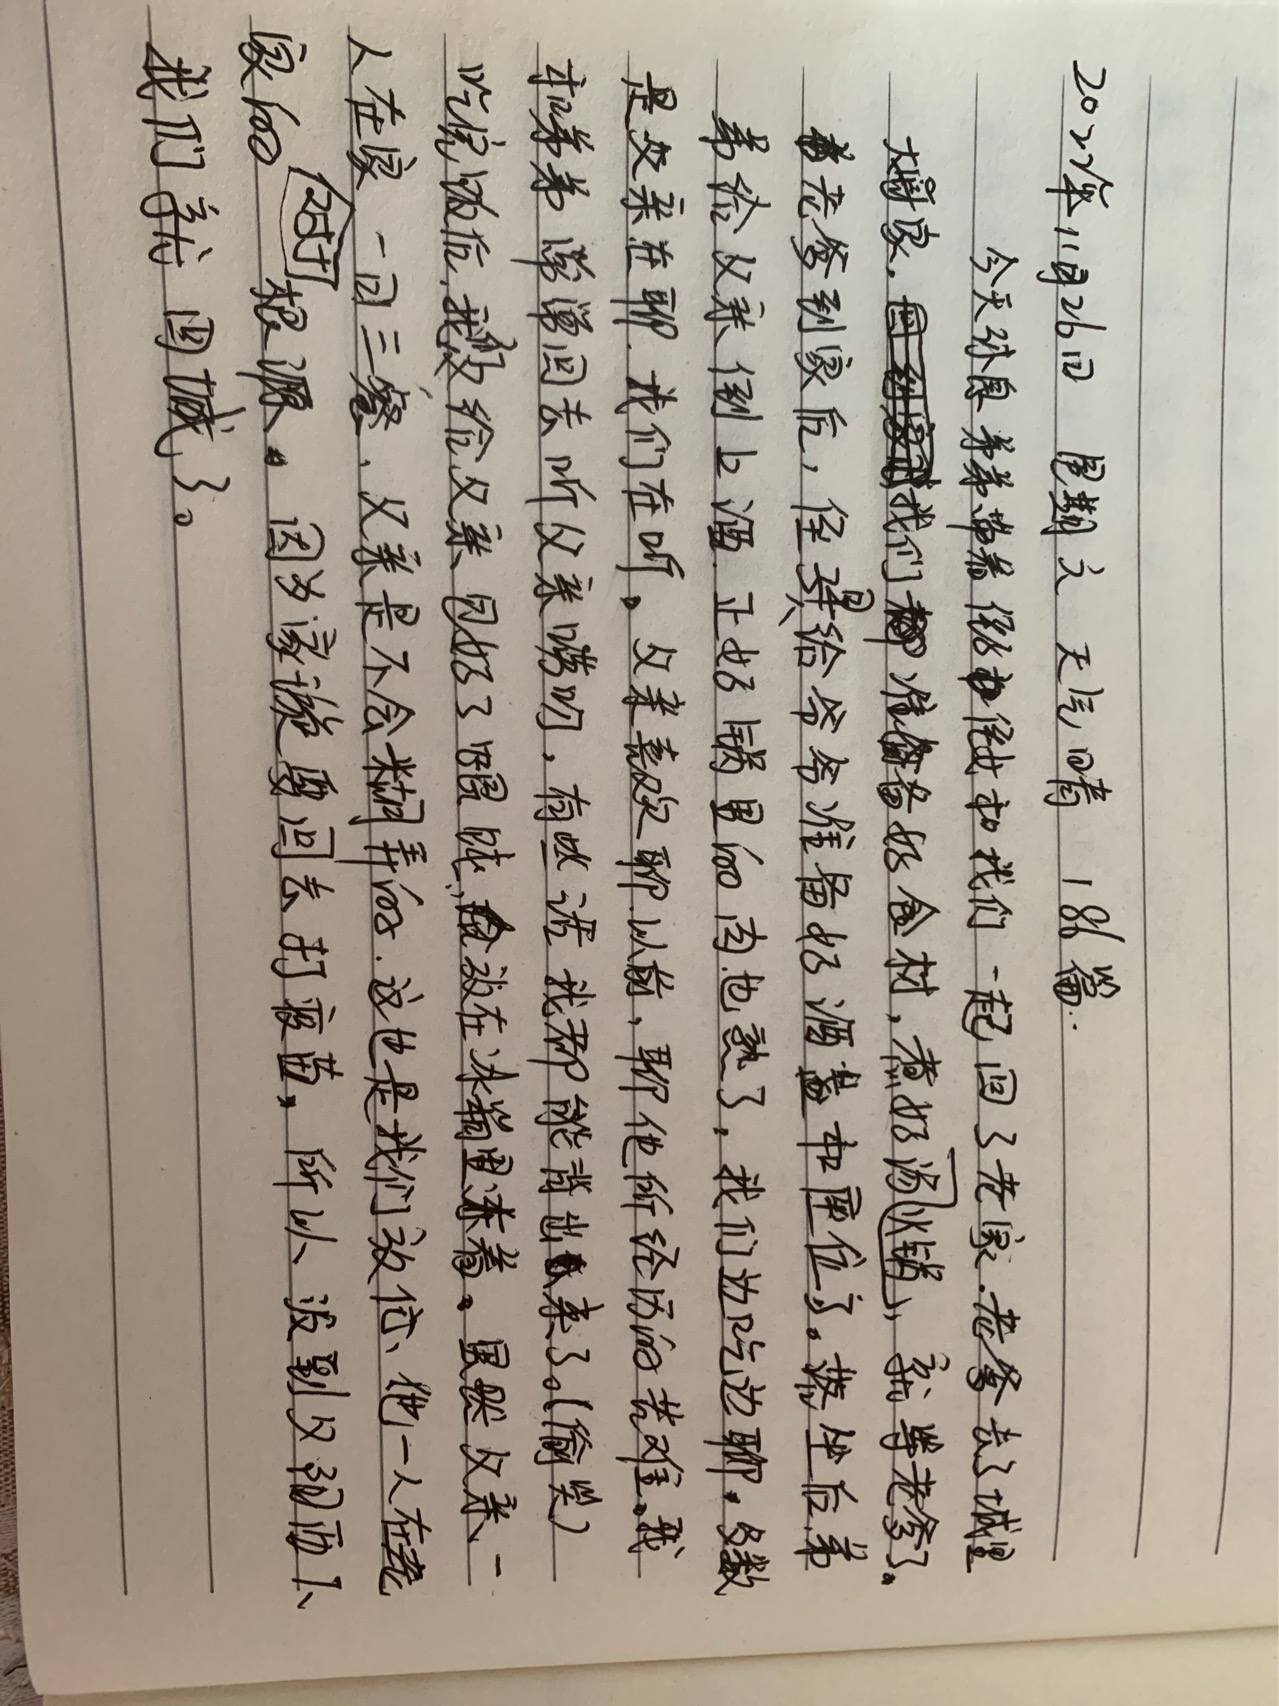 2022年11月26日 星期六 天气晴 186篇.
今天休息弟弟带着侄和侄女和我们一起回了老家.老爹去了城里
大哥家.我们准备好食材,煮好汤(火锅),就等老爹了。
老爹到家后,侄舅给爷爷准备好酒盅和座位了。落坐后,弟
弟给父亲倒上酒.正好锅里的肉也熟了,我们边吃边聊.多数
是父亲在聊.我们在听。父亲喜欢聊以前,聊他所经历的苦难。我
和弟弟常常回去听父亲唠叨,有些话我都能背出来了。(偷笑)
吃完饭后,我们给父亲包好了馄饨,放在冰箱里冻着。虽然父亲一
人在家一日三餐,父亲是不会糊弄的.这也是我们放任、他一人在老
家的根源。因为家诶要回去打疫苗,所以,没到父初而下、
我们就回城了。